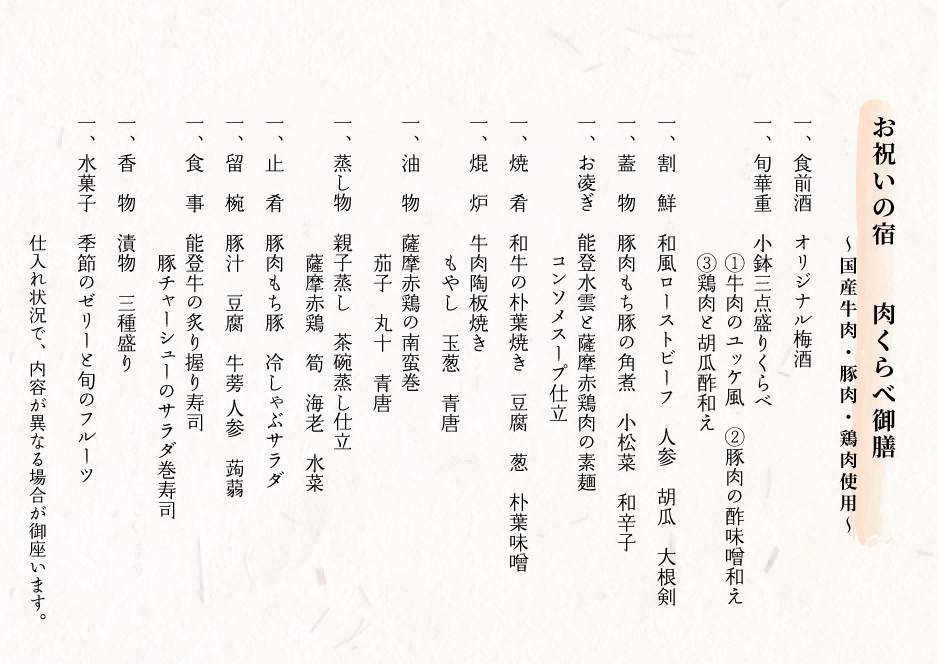 お祝いの宿　肉くらべ御膳
～国産牛肉・豚肉・鶏肉使用～
一、食前酒　オリジナル梅酒
一、旬華重　小鉢三点盛りくらべ
①牛肉のユッケ風　②豚肉の酢味噌和え
③鶏肉と胡瓜酢和え
一、割　鮮　和風ローストビーフ　人参　胡瓜　大根剣
一、蓋　物　豚肉もち豚の角煮　小松菜　和辛子
一、お凌ぎ　能登水雲と薩摩赤鶏肉の素麺
コンソメスープ仕立
一、焼　肴　和牛の朴葉焼き　豆腐　葱　朴葉味噌
一、焜　炉　牛肉陶板焼き
もやし　玉葱　青唐
一、油　物　薩摩赤鶏の南蛮巻
茄子　丸十　青唐
一、蒸し物　親子蒸し　茶碗蒸し仕立
薩摩赤鶏　筍　海老　水菜
一、止　肴　豚肉もち豚　冷しゃぶサラダ
一、留　椀　豚汁　豆腐　牛蒡人参　蒟蒻
一、食　事　能登牛の炙り握り寿司
豚チャーシューのサラダ巻寿司
一、香　物　漬物　三種盛り
一、水菓子　季節のゼリーと旬のフルーツ
仕入れ状況で、内容が異なる場合が御座います。